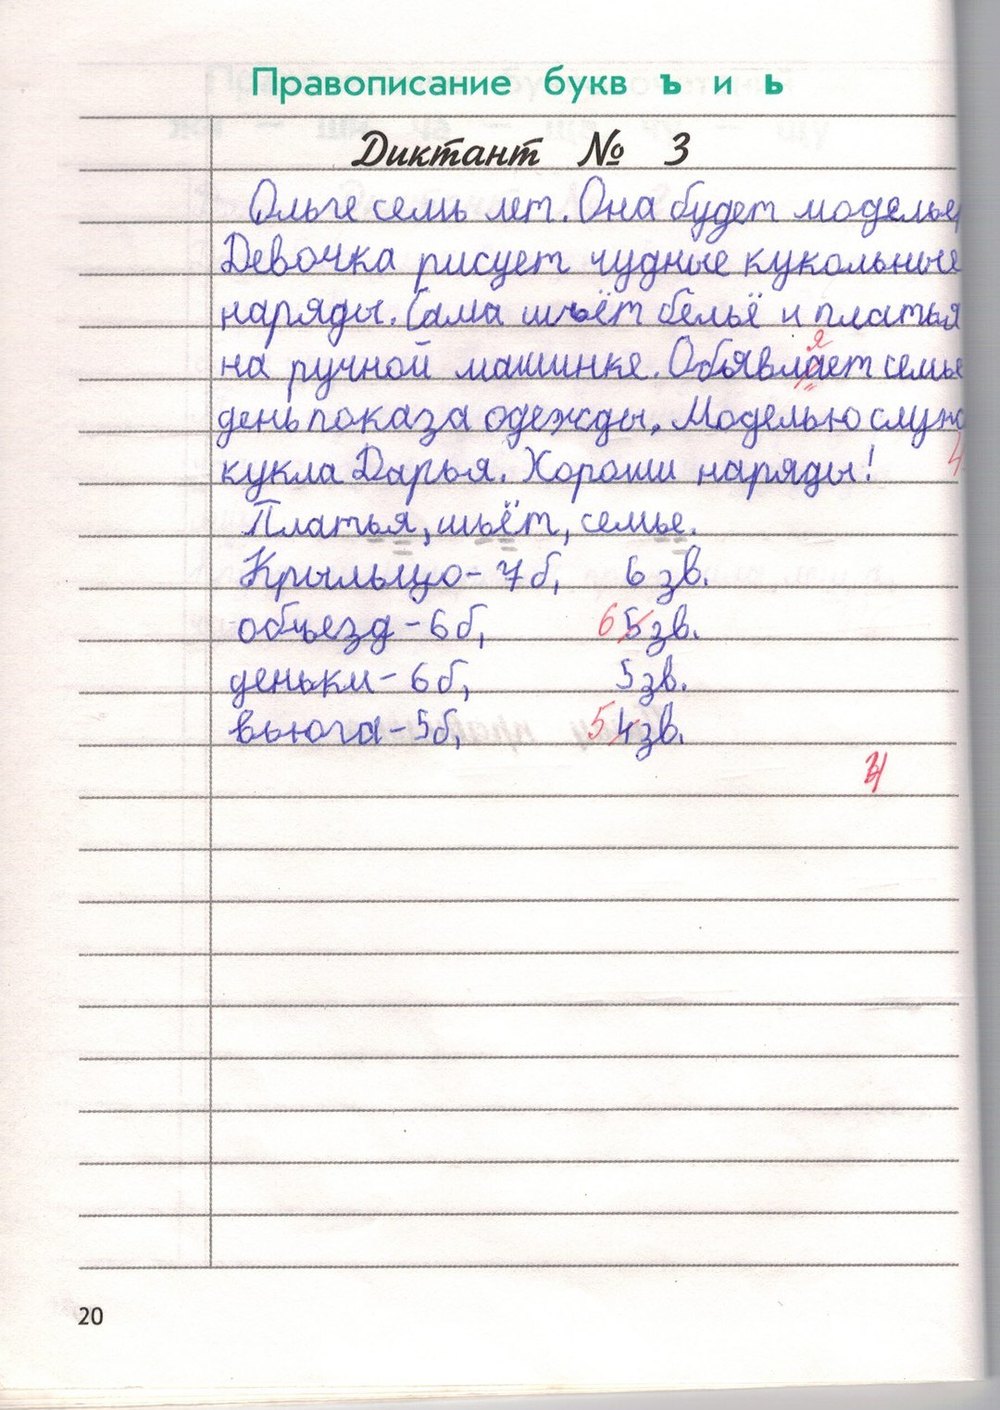 Правописание букв ъ и ь
Диктант № 3
Ольге семь лет. Она будет моделье
Девочка рисует чудные кукольные
наряды. Сама шьёт бельё и платья
я
на ручной машинке. Обьявлает семье
день показа одежды. Моделью служ
4
кукла Дарья. Хороши наряды!
Платья, шьёт, семье.
Крыльцо - 7 б, 6 зв.
объезд - 6 б, 6 5 зв.
деньки - 6 б, 5 зв.
вьюга - 5 б, 5 4 зв.
20